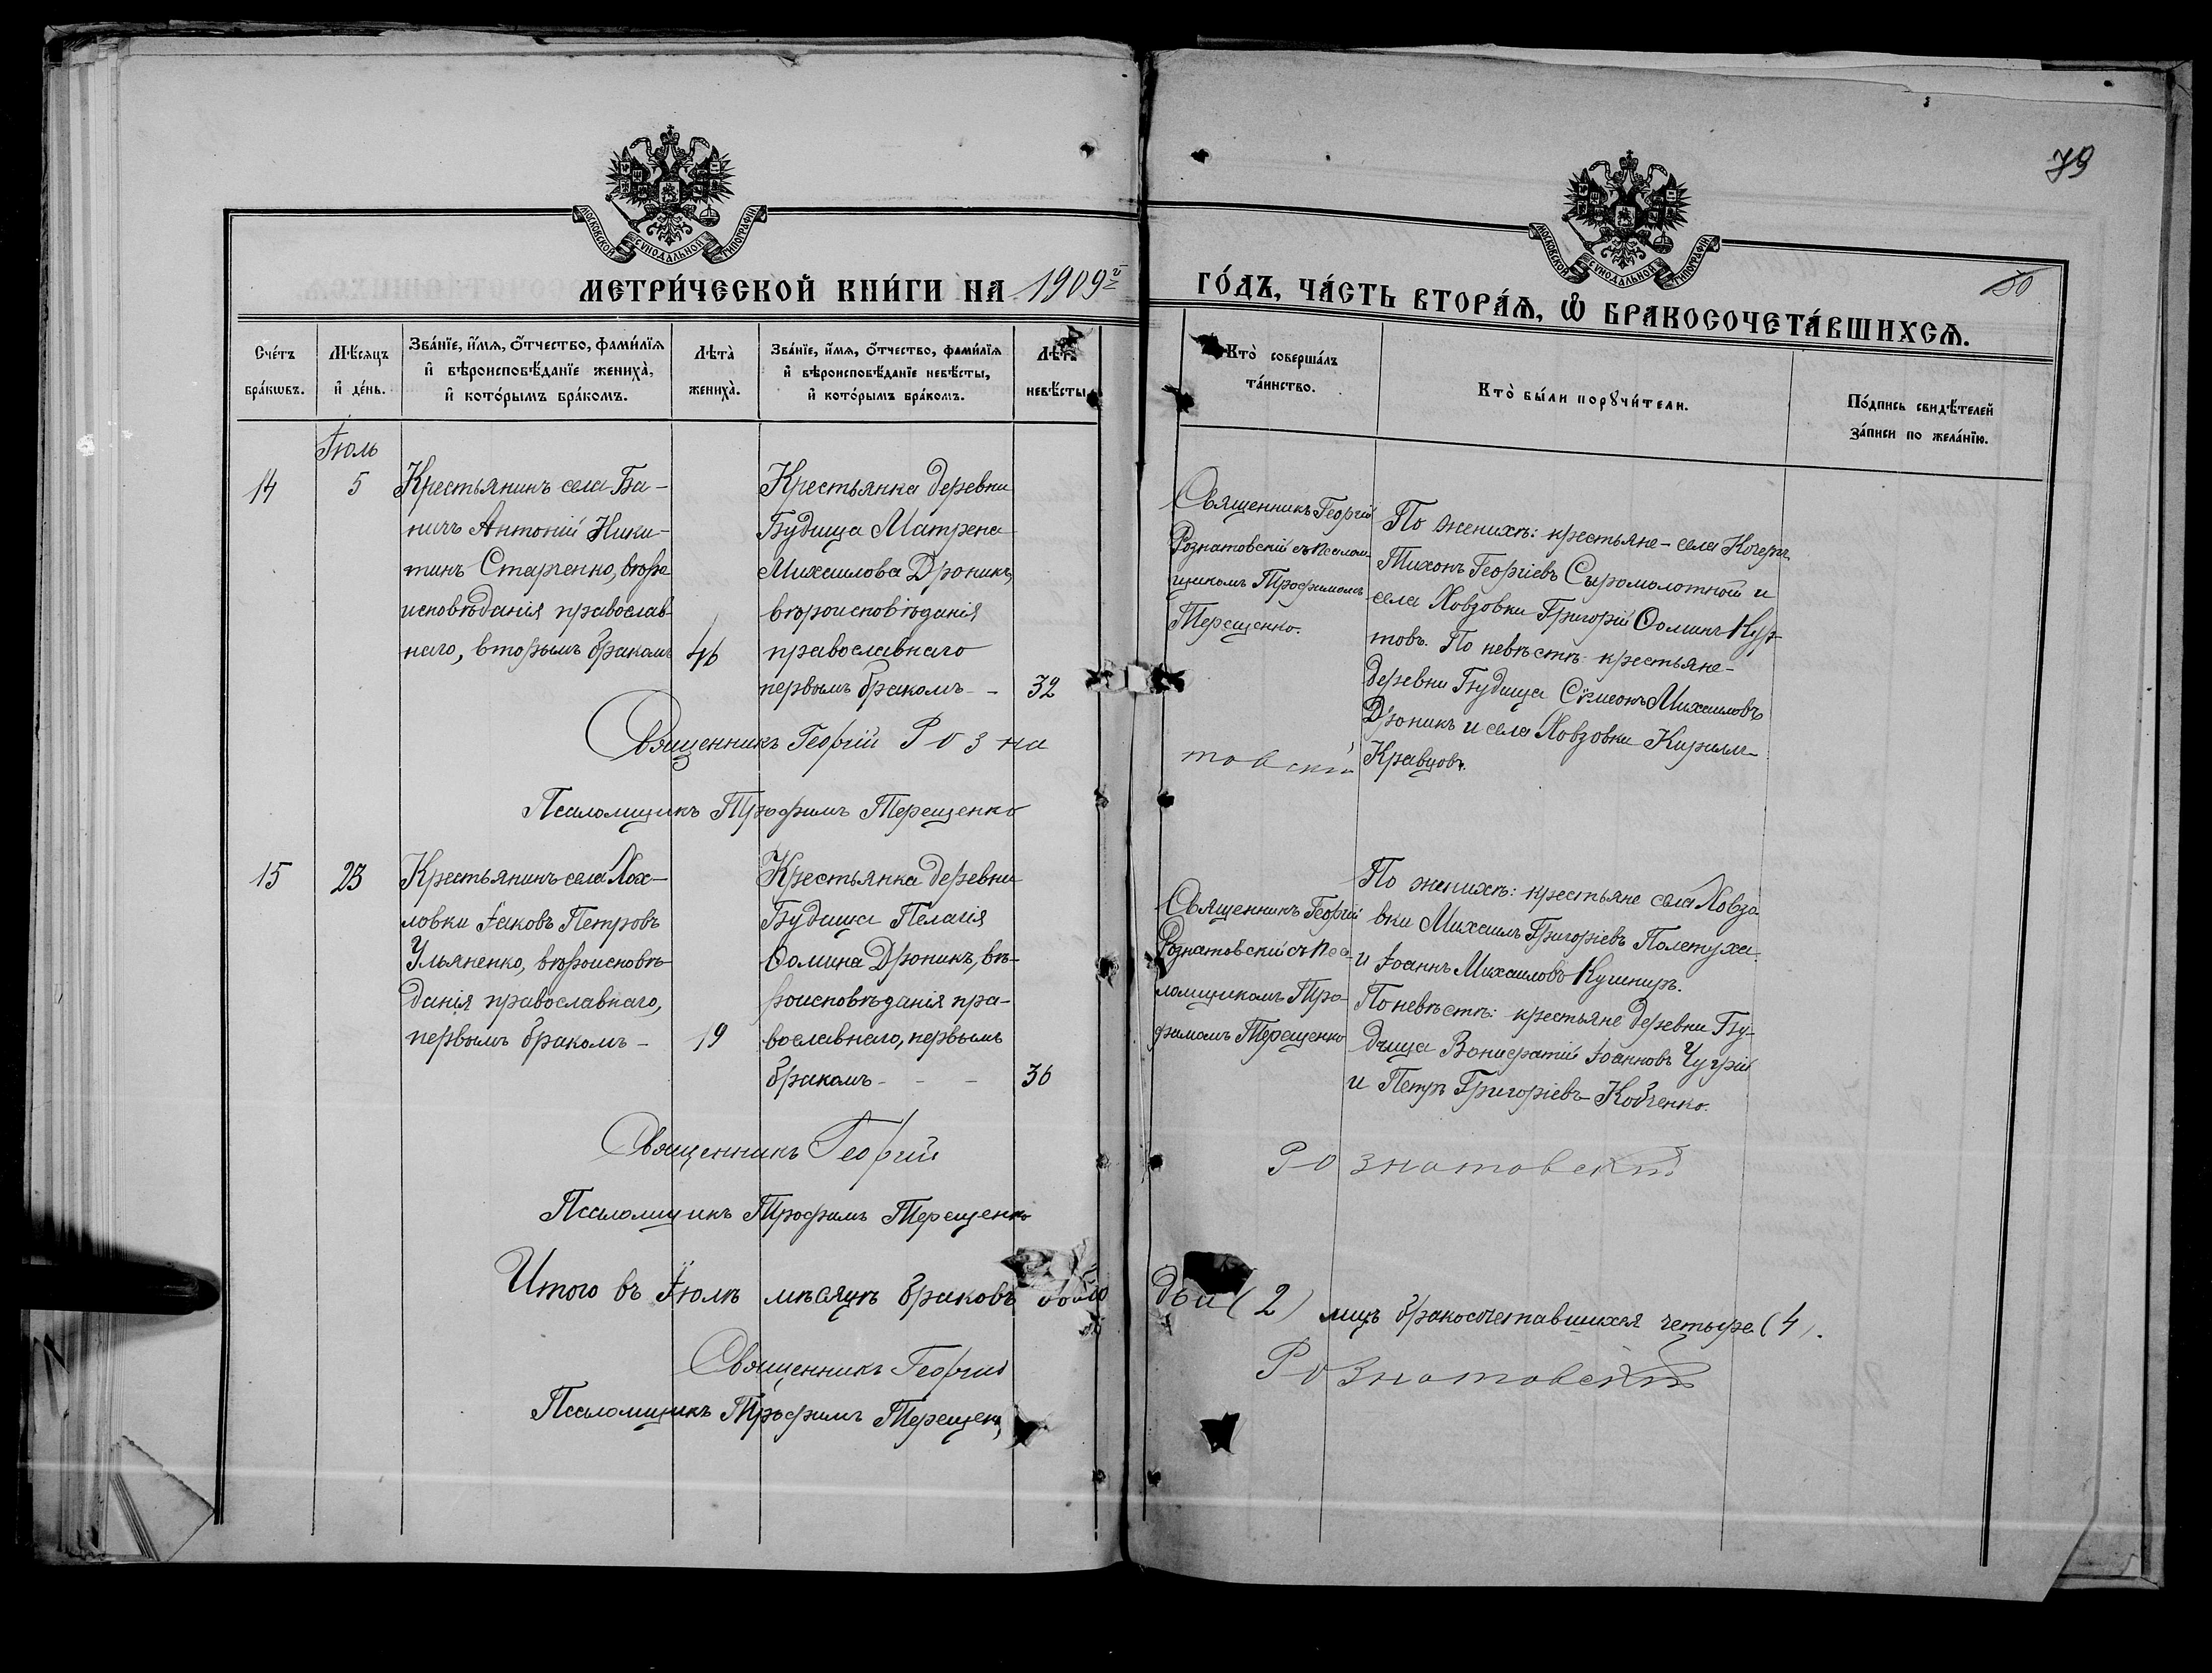 79
50
МОСКОВСКОЙ СѴНОДАЛЬНОЙ ТИПОГРАФІИ
МОСКОВСКОЙ СѴНОДАЛЬНОЙ ТИПОГРАФІИ
МЕТРИ́ЧЕСКОЙ КНИ́ГИ НА 1909й ГО́ДЪ, ЧА́СТЬ ВТОРА́Ѧ, Ѡ҆ БРАКОСОЧЕТА́ВШИХСѦ.
Сче́тъ
бра́кѡвъ.
Мѣ́сяцъ
и҆ де́нь.
Зва́нїе, и҆́мя, ѻ҆́тчество, фами́лїя
и҆ вѣроисповѣ́данїе жениха̀,
и҆ кото́рымъ бра́комъ.
Лѣта̀
жениха̀.
Зва́нїе, и҆́мя, ѻ҆́тчество, фами́лїя
и҆ вѣроисповѣ́данїе невѣ́сты,
и҆ кото́рымъ бра́комъ.
Лѣта̀
невѣ́сты
Кто̀ соверша́лъ
та́инство.
Кто̀ бы́ли порꙋчи́тели.
По́дпись свидѣ́телей
за́писи по жела́нїю.
Іюль
14
5
Крестьянинъ села Ба-
ничъ Антоній Ники-
тинъ Старченко, вѣро
исповѣданія православ
наго, вторымъ бракомъ
46
Крестьянка деревни
Будища Матрена
Михаилова Дроникъ,
вѣроисповѣданія
православнаго
первымъ бракомъ - -
32
Священникъ Георгій
Рознатовскій съ псалом
щикомъ Трофимомъ
Терещенко.
По женихѣ: крестьяне - села
Тихонъ Георгіевъ Сыромолотной и
села Ховзовки Григорій Ѳоминъ Кур-
товъ. По невѣстѣ: крестьяне-
деревни Будища Сѵмеонъ Михаиловъ
Дроникъ и села Ховзовки Кириллъ
Кравцовъ.
Священникъ Георгій Розна
товскій
Псаломщикъ Трофимъ Терещенко
15
23
Крестьянинъ села Хох-
ловки Іаковъ Петровъ
Ульяненко, вѣроисповѣ-
данія православнаго,
первымъ бракомъ -
19
Крестьянка деревни
Будища Пелагія
Ѳомина Дроникъ, вѣ-
роисповѣданія пра-
вославнаго, первымъ
бракомъ - - -
36
Священникъ Георгій
Рознатовскій съ пса-
ломщикомъ Тро-
фимомъ Терещенко
По женихѣ: крестьяне села Ховзо-
вки Михаилъ Григоріевъ Полетуха
и Іоаннъ Михаиловъ Кушниръ.
По невѣстѣ: крестьяне деревни Бу-
дища Вонифатій Іоанновъ Чугрій
и Петръ Григоріевъ Кобченко.
Священникъ Георгій Рознатовскій
Псаломщикъ Трофимъ Терещенко
Итого въ Іюлѣ мѣсяцѣ браковъ было два (2) лицъ бракосочетавшихся четыре (4).
Священникъ Георгій Рознатовскій
Псаломщикъ Трофимъ Терещенк